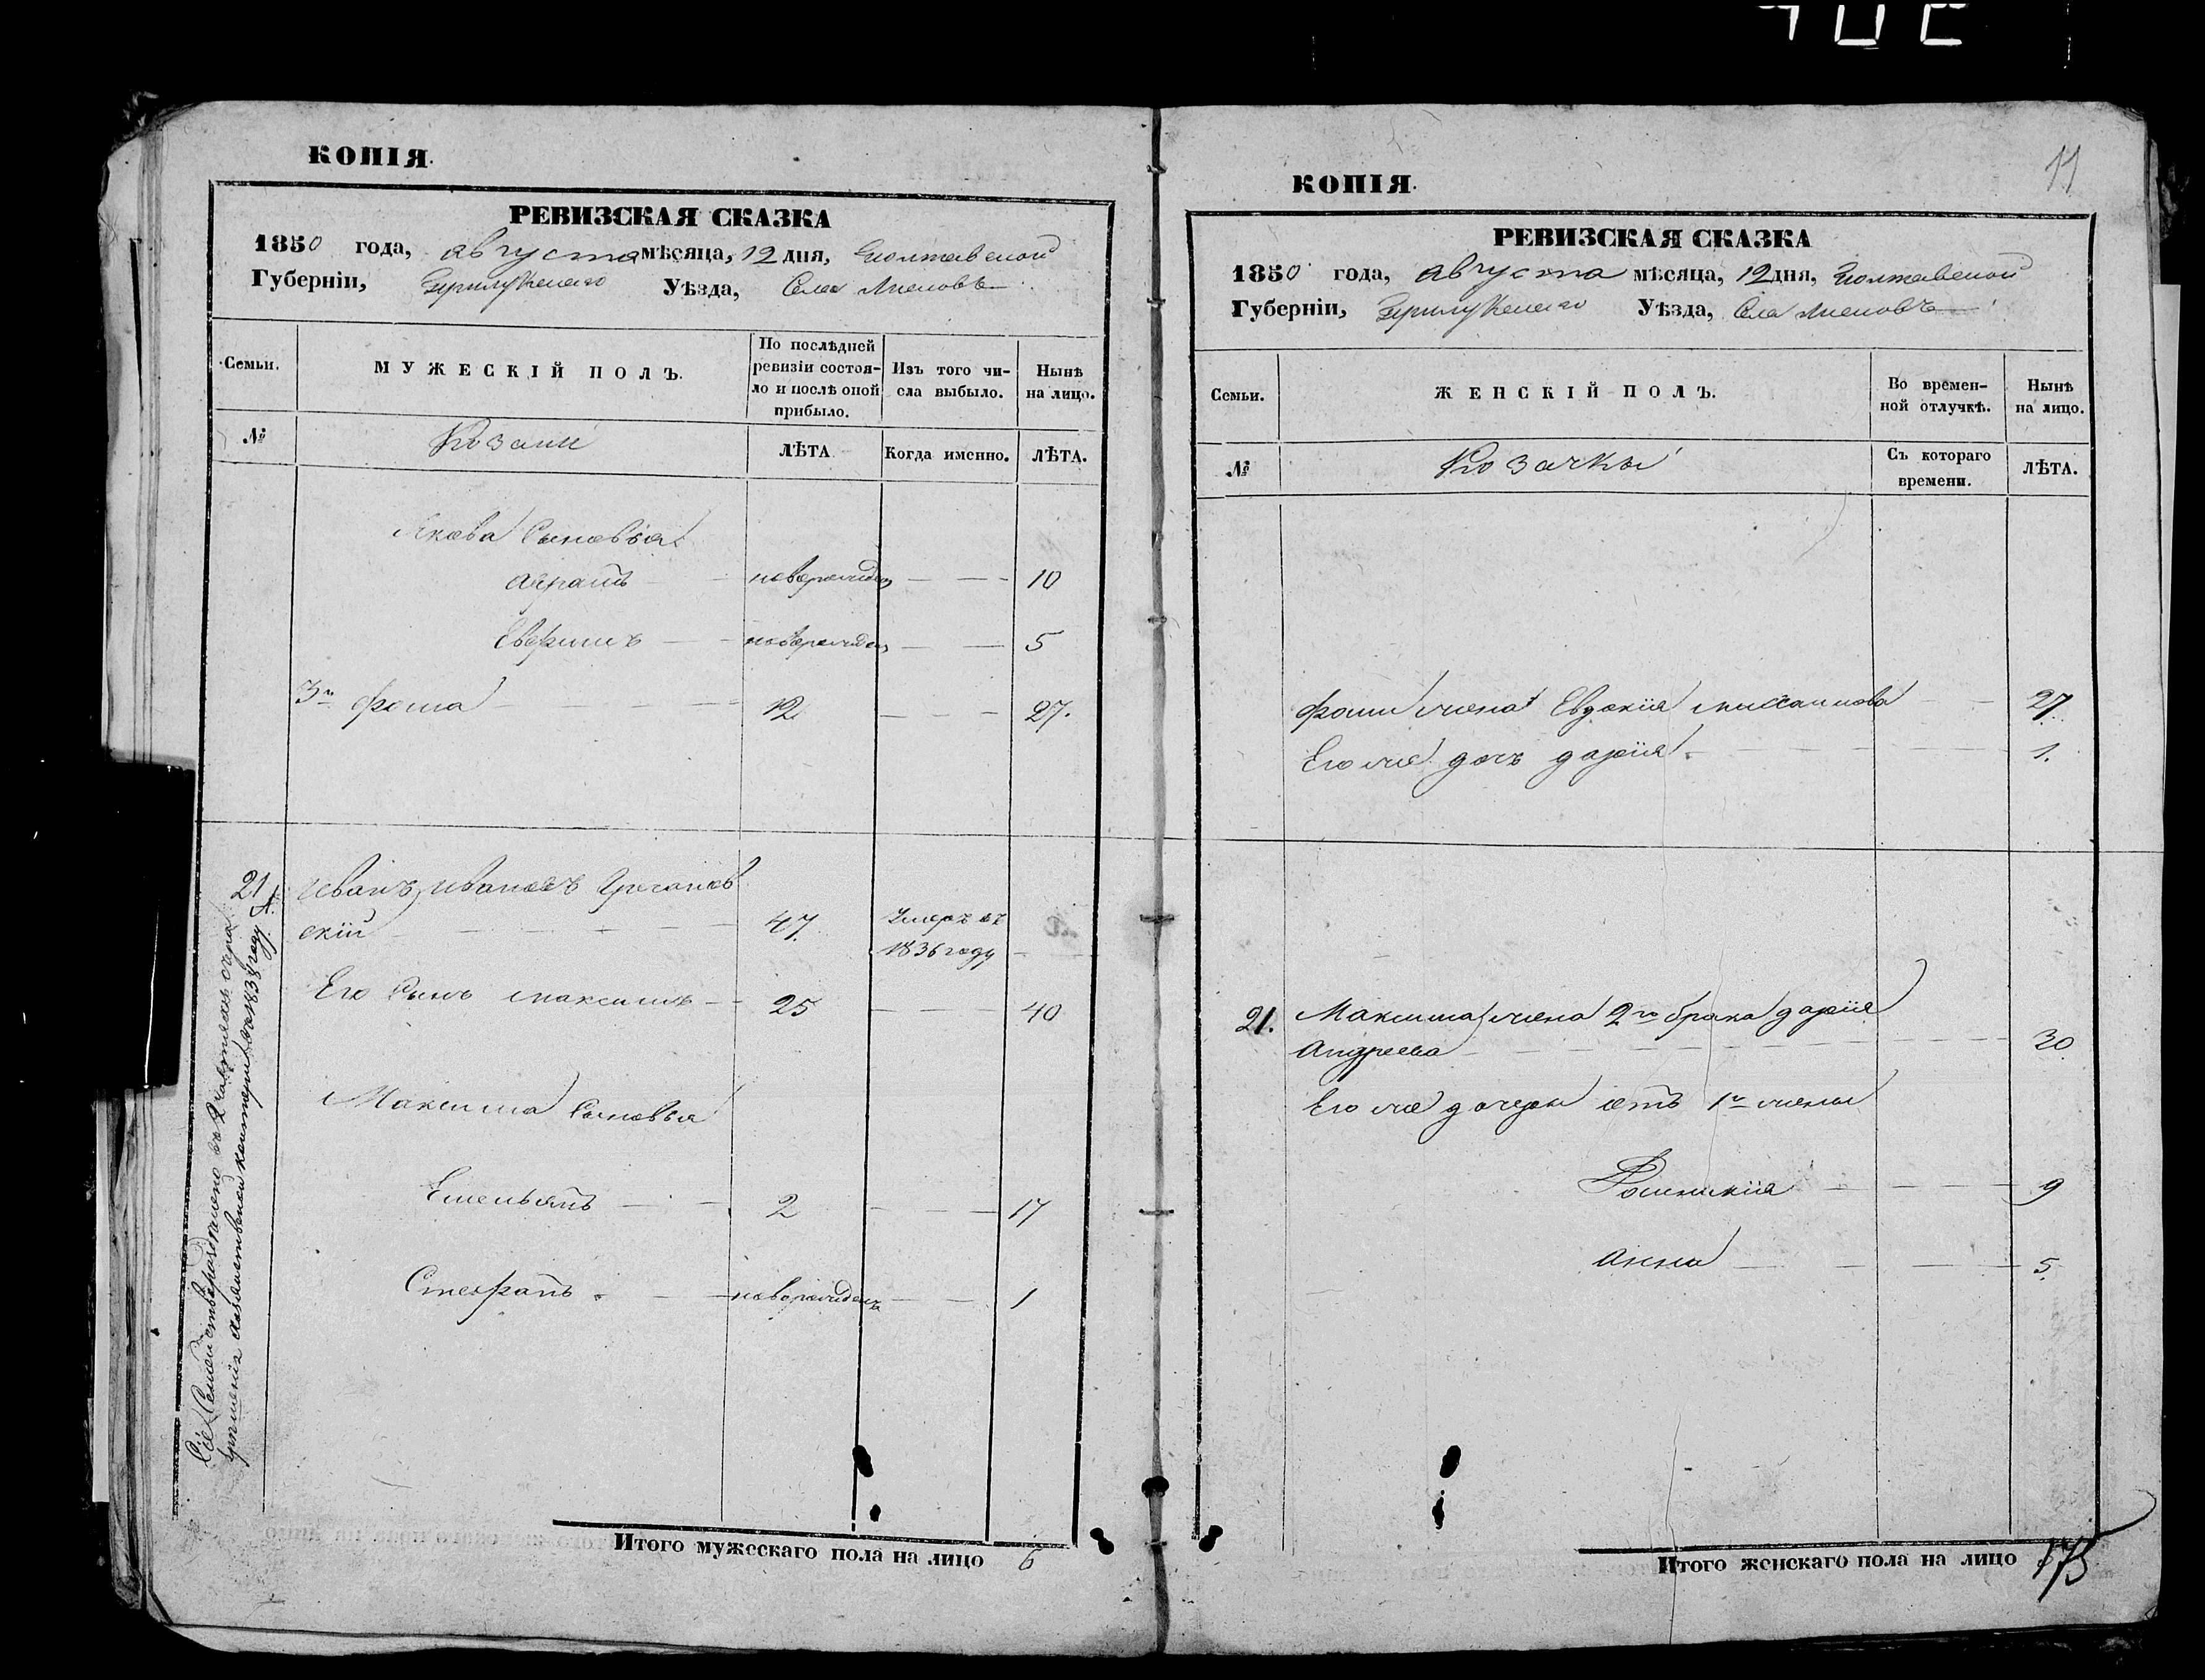 КОПІЯ.
РЕВИЗСКАЯ СКАЗКА
1850 года, августа мѣсяца, 12 дня, Полтавской
Губерніи, Прилуцкаго Уѣзда, Села
Семьи.
МУЖЕСКІЙ ПОЛЪ.
По послѣдней ревизіи состояло и послѣ оной прибыло.
Изъ того числа выбыло.
Нынѣ на лицо.
№
Козаки
ЛѢТА
Когда именно.
ЛѢТА.
Якова Сыновья
новорожден — — 10
новорожден — — 5
3й Фома — — 12 — — — 27.
21 Иванъ Ивановъ
скій — — 47. Умеръ въ
1836 году —
Его Сынъ Максимъ — 25 — — — 40
Максима Сыновья
Емельянъ — — 2 — — — 17
Стефанъ — новорожденъ — — 1
Сіе Семейство
въ 1838 году
Итого мужескаго пола на лицо 6
11
КОПІЯ.
РЕВИЗСКАЯ СКАЗКА
1850 года, августа мѣсяца, 12 дня, Полтавской
Губерніи, Прилуцкаго Уѣзда, Села
Семьи.
ЖЕНСКІЙ ПОЛЪ.
Во временной отлучкѣ.
Нынѣ на лицо.
№
Козачки
Съ котораго времени.
ЛѢТА.
Фомы жена Евдокія — — 27
Его же дочь Дарія — — 1.
21. Максима жена 2го брака Дарія
Андреева — — 30
Его же дочери отъ 1й жены
— — 9
Анна — — 5
Итого женскаго пола на лицо